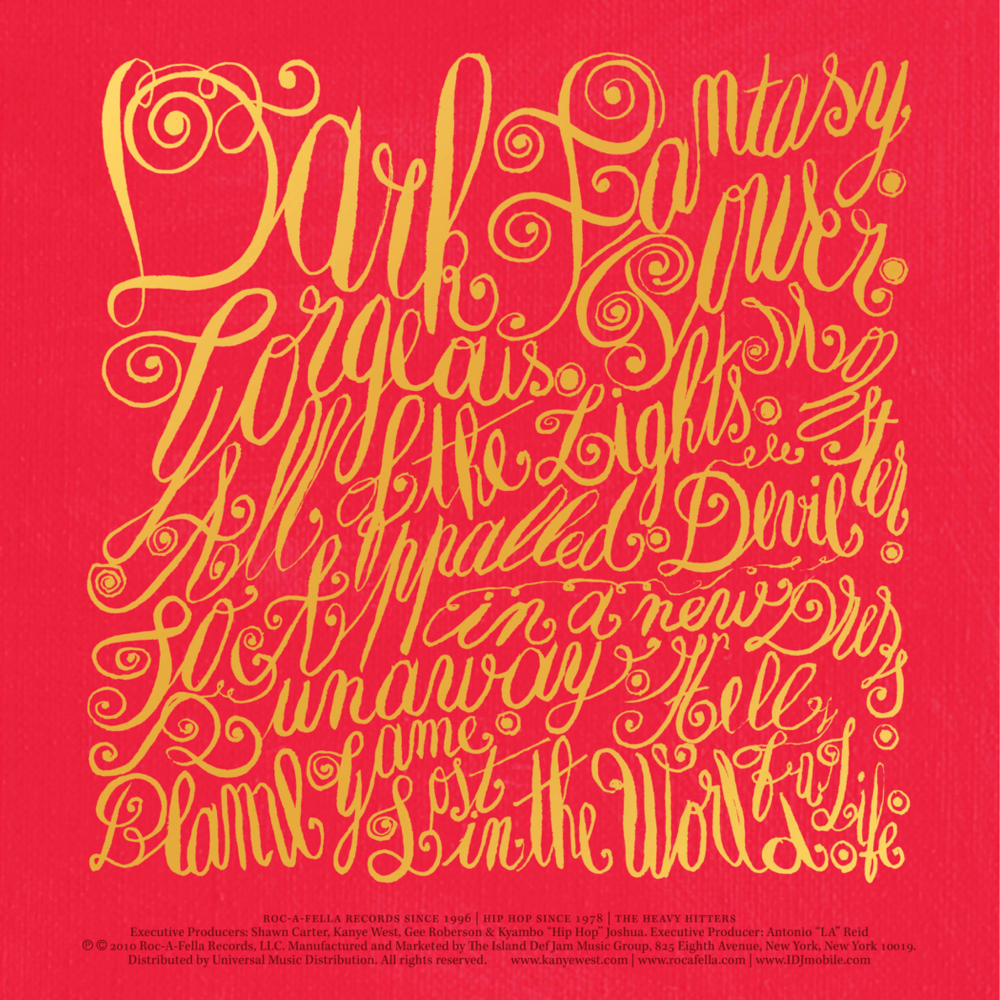 Dark Fantasy
Power
Gorgeous
Monster
All of the Lights
Devil in a new Dress
So Appalled
Runaway
Hell of a Life
Blame Game
Lost in the World
ROC-A-FELLA RECORDS SINCE 1996 | HIP HOP SINCE 1978 | THE HEAVY HITTERS
Executive Producers: Shawn Carter, Kanye West, Gee Roberson & Kyambo "Hip Hop" Joshua. Executive Producer: Antonio "LA" Reid
℗ © 2010 Roc-A-Fella Records, LLC. Manufactured and Marketed by The Island Def Jam Music Group, 825 Eighth Avenue, New York, New York 10019.
Distributed by Universal Music Distribution. All rights reserved. www.kanyewest.com | www.rocafella.com | www.IDJmobile.com